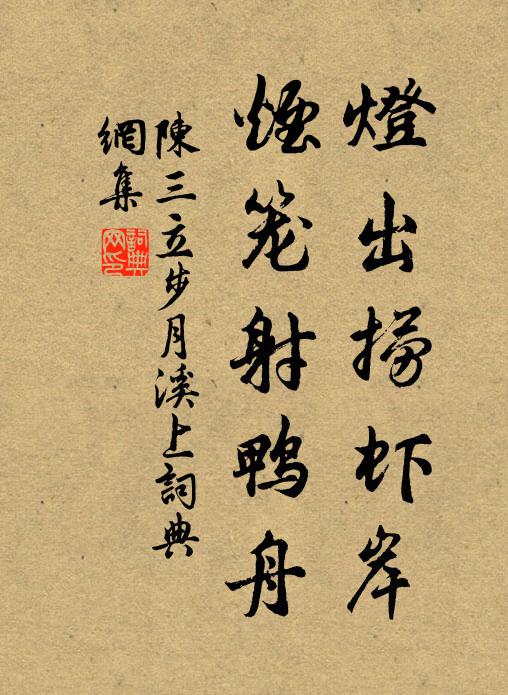 燈出捞虾岸
煙笼射鴨舟
陳三立步月溪上詞典
網集
詞典
网印